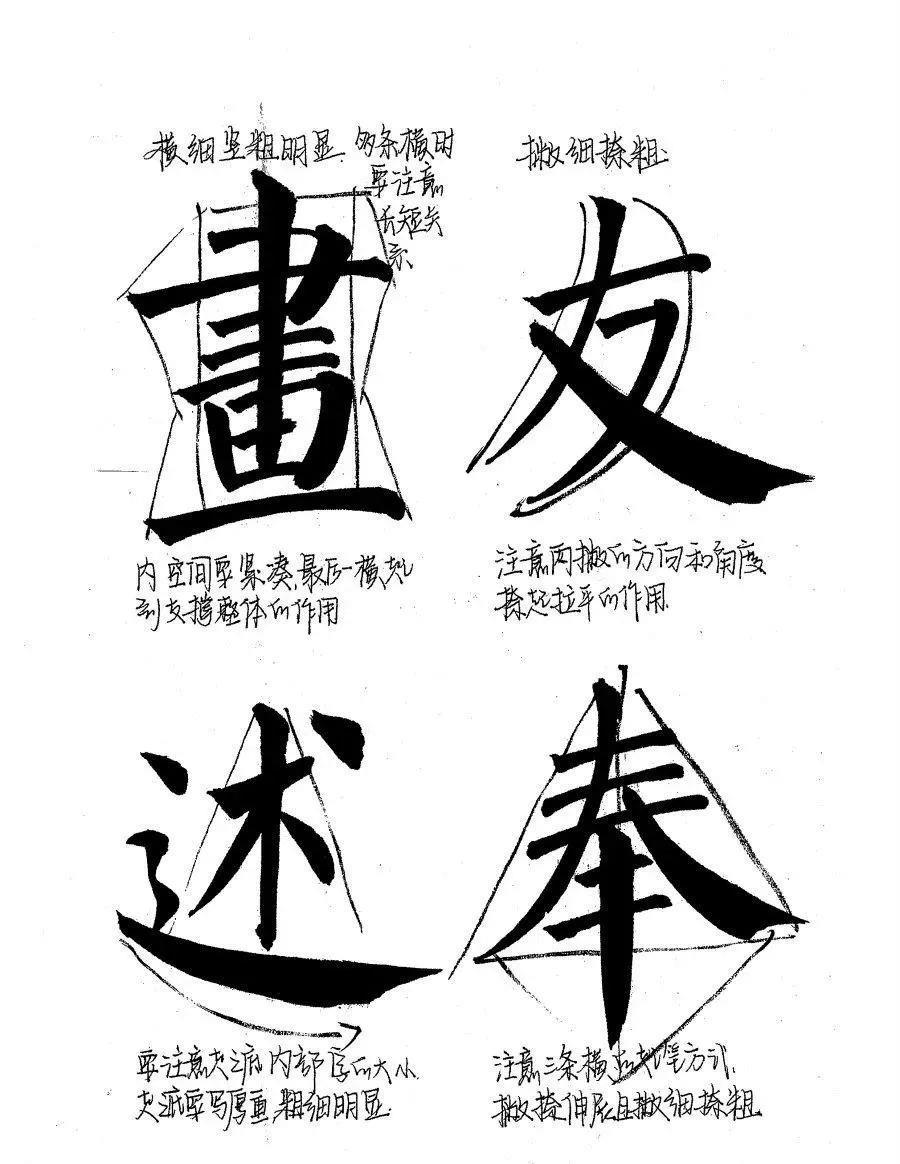 横细竖粗明显,多条横时
要注意
长短关
系
畫
内空间要紧凑,最后一横起
到支撑整体的作用
撇细捺粗
友
注意两撇的方向和角度
捺起拉平的作用.
述
要注意走之底内部字的大小.
走之底要写厚重,粗细明显.
奉
注意三条横的起笔方式.
撇捺伸展且撇细捺粗